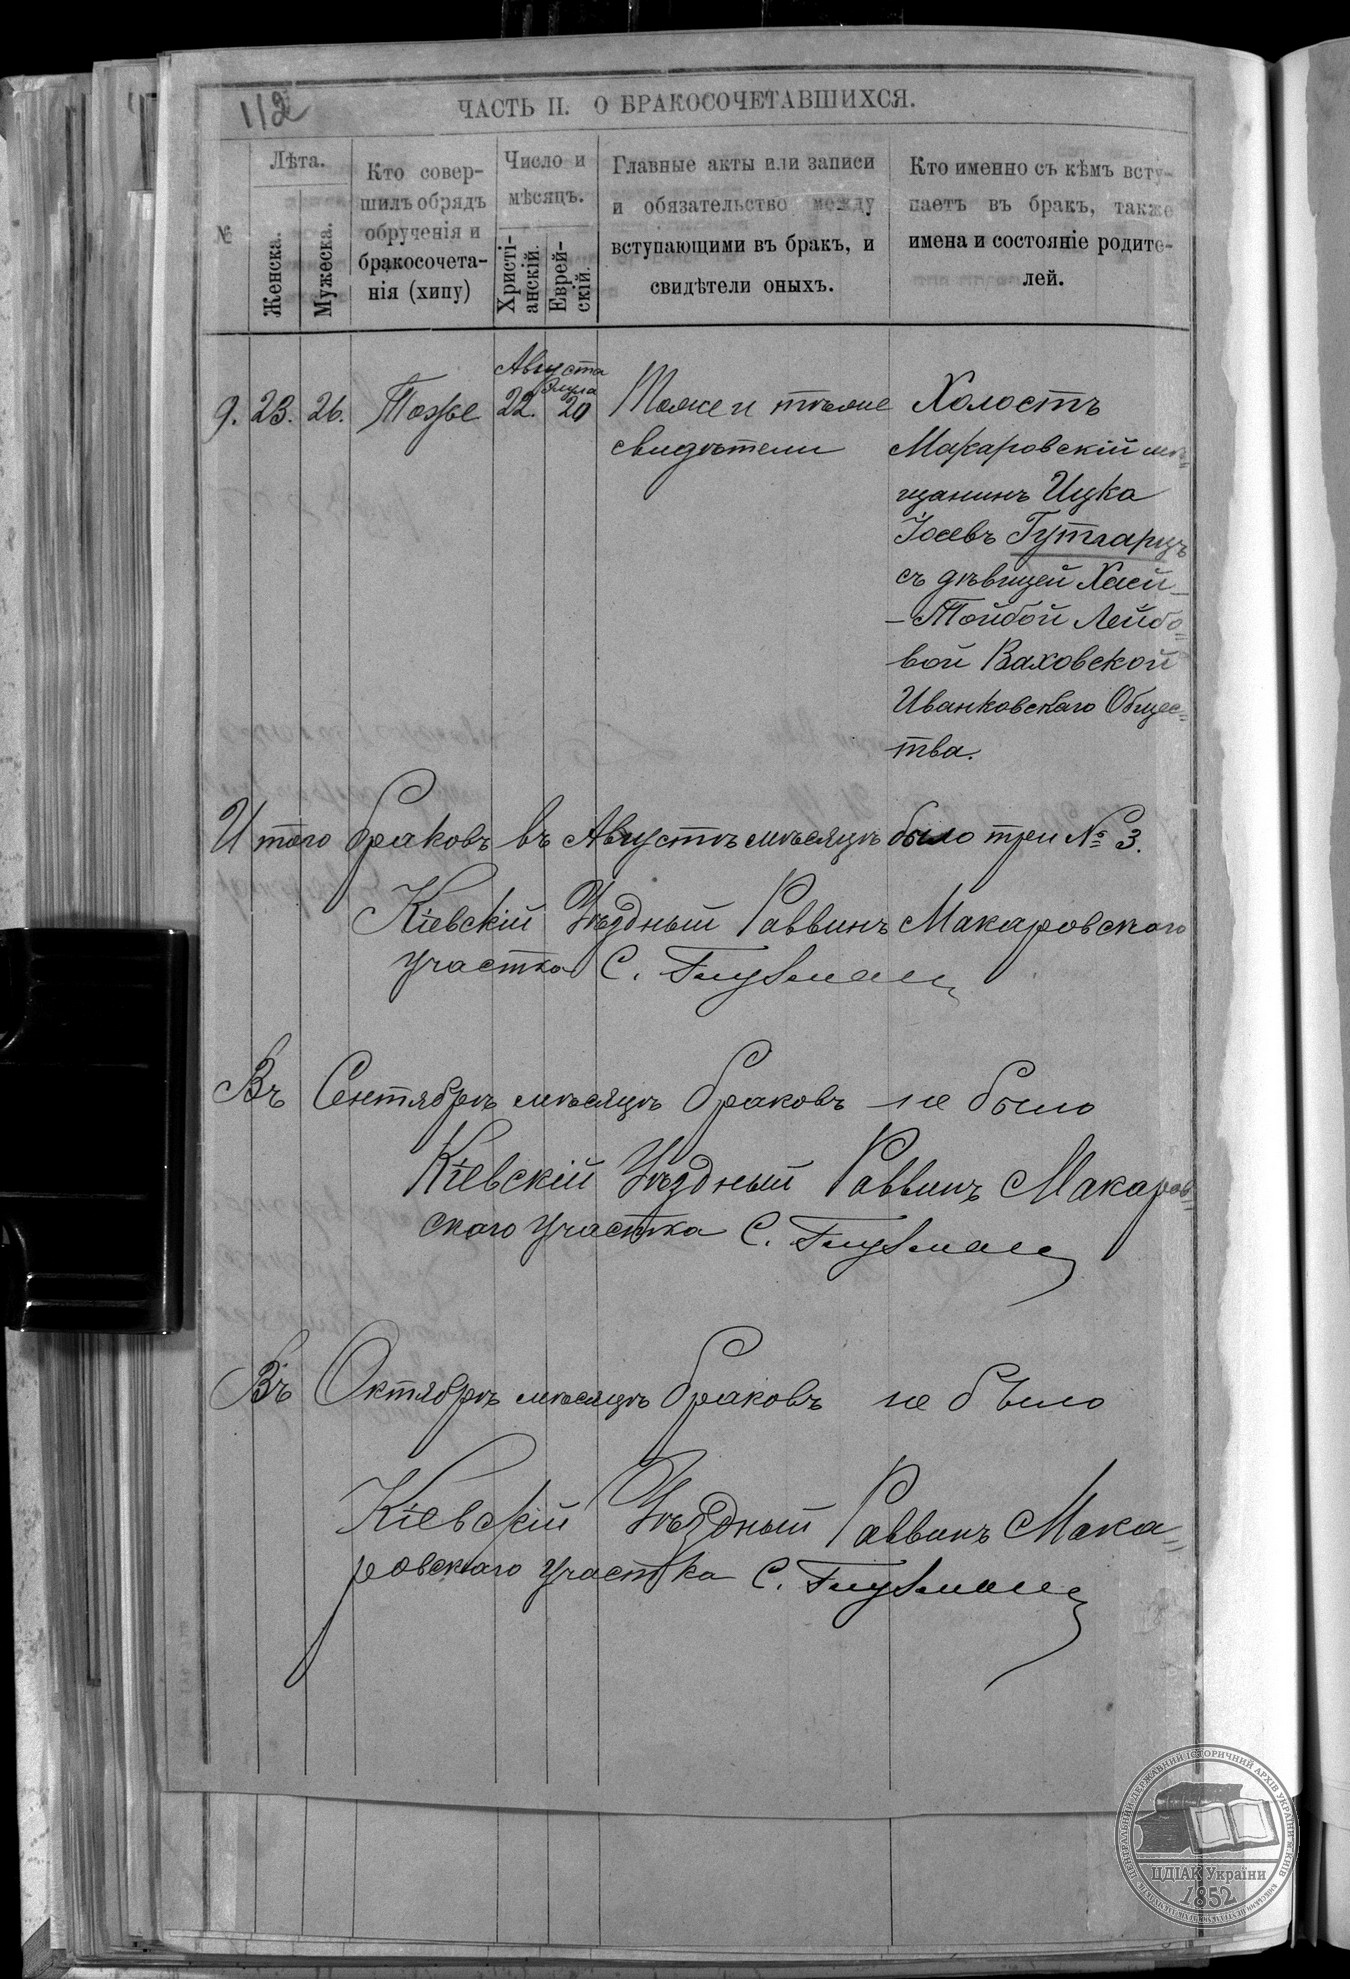 112
ЧАСТЬ II. О БРАКОСОЧЕТАВШИХСЯ.
№
Лѣта.
Женска.
Мужеска.
Кто совер-
шилъ обрядъ
обрученія и
бракосочета-
нія (хипу)
Число и
мѣсяцъ.
Христі-
анскій.
Еврей-
скій.
Главные акты или записи
и обязательство между
вступающими въ бракъ, и
свидѣтели оныхъ.
Кто именно съ кѣмъ всту-
паетъ въ бракъ, также
имена и состояніе родите-
лей.
Августа
Элула
9. 23. 26. Тоже 22. 20 Тоже и тѣже Холостъ
свидѣтели Макаровскій мѣ=
щанинъ Ицка
Іосевъ Гутгарцъ
съ дѣвицей Хаей-
-Тойбой Лейбо=
вой Ваховской
Иванковскаго Общес=
тва.
Итого браковъ въ Августѣ мѣсяцѣ было три № 3.
Кіевскій Уѣздный Раввинъ Макаровскаго
участка С. Глузманъ
Въ Сентябрѣ мѣсяцѣ браковъ не было
Кіевскій Уѣздный Раввинъ Макаров=
скаго участка С. Глузманъ
Въ Октябрѣ мѣсяцѣ браковъ не было
Кіевскій Уѣздный Раввинъ Мака=
ровскаго участка С. Глузманъ
ЦЕНТРАЛЬНИЙ ДЕРЖАВНИЙ ІСТОРИЧНИЙ АРХІВ УКРАЇНИ М.КИЇВ
ЦДІАК України
1852